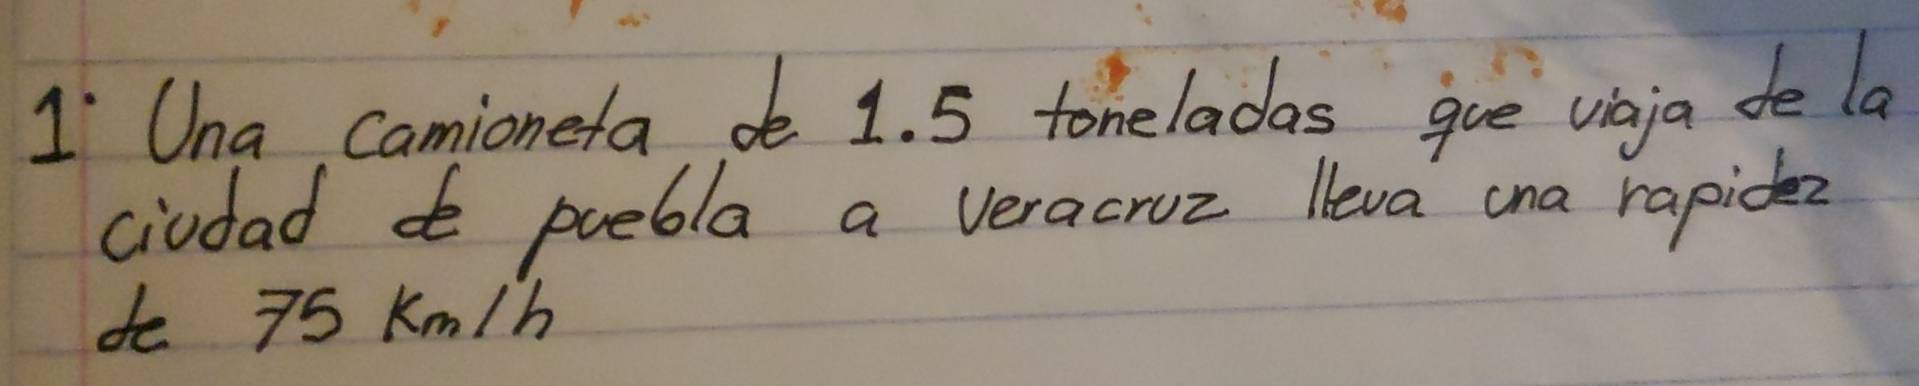 1. Una camioneta de 1.5 toneladas que viaja de la
ciudad de puebla a veracruz lleva una rapidez
de 75 Km/h